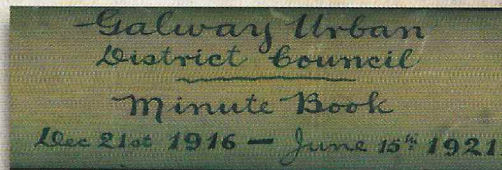 Galway Urban
District Council
Minute Book
Dec 21st 1916 — June 15th 1921